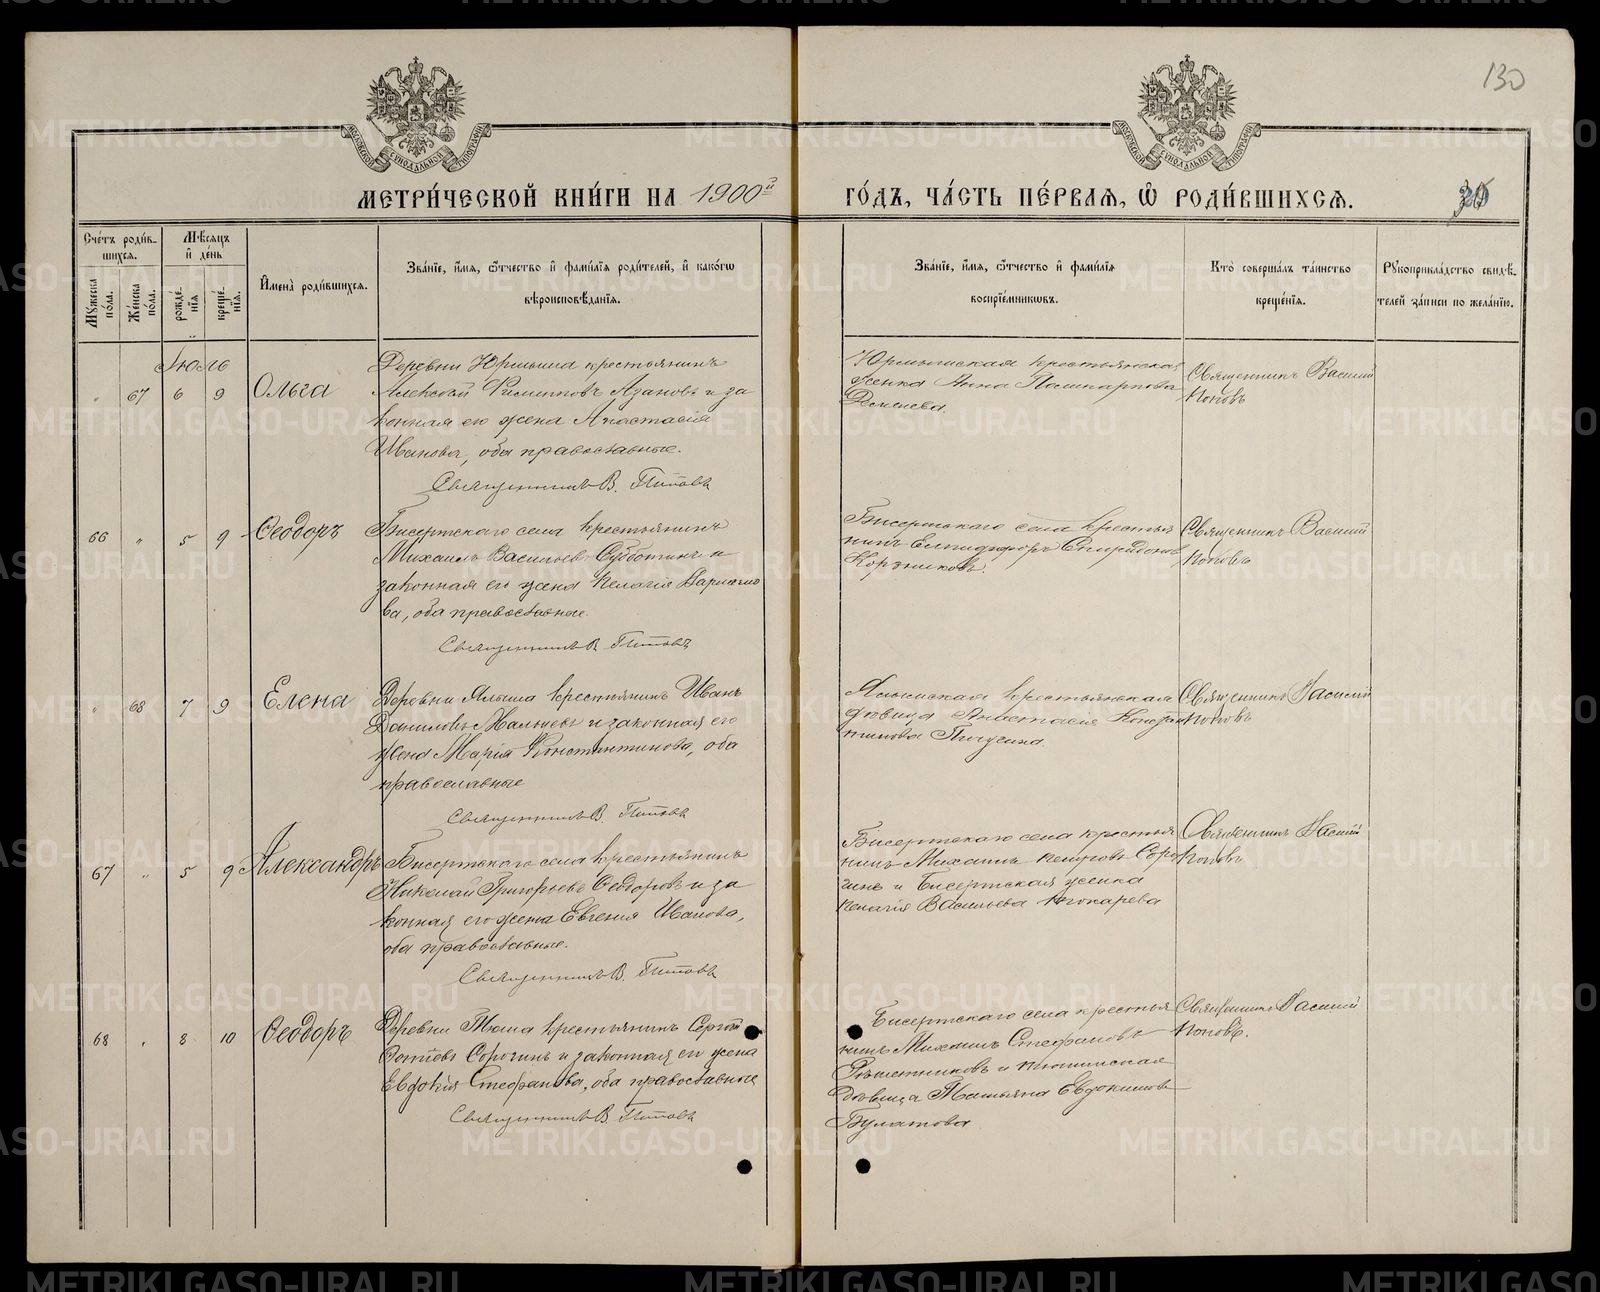 130
МОСКОВСКОЙ СѴНОДАЛЬНОЙ ТИПОГРАФІИ
МОСКОВСКОЙ СѴНОДАЛЬНОЙ ТИПОГРАФІИ
МЕТРИ́ЧЕСКОЙ КНИ́ГИ НА 1900й
ГО́ДЪ, ЧА́СТЬ ПЕ́РВАѦ, Ѿ РОДИ́ВШИХСѦ.
Сче́тъ роди́в-
шихся.
Му́жеска пола.
Же́нска по́ла.
Мѣ́сяцъ
и҆ де́нь
рожде́-
нїя
креще́-
нїя.
И҆мена̀ роди́вшихся.
Зва́нїе, и҆́мя, ѻ҆́тчество и҆ фами́лїя роди́телей, и҆ како́гѡ
вѣроисповѣ́данїя.
Зва́нїе, и҆́мя, ѻ҆́тчество и҆ фами́лїя
воспрїе́мниковъ.
Кто̀ соверша́лъ та́инство
креще́нїя.
Рꙋкоприкла́дство свидѣ́-
телей за́писи по жела́нїю.
Іюль
„ 67 6 9 Ольга
Деревни Юрмыша крестьянинъ
Алексѣй Филипповъ Азановъ и за
конная его жена Анастасія
Иванова, оба православные.
Священникъ В. Поповъ
Юрмышская крестьянская
женка Анна
Деменева.
Священникъ Василій
Поповъ
66 „ 5 9 Ѳеодоръ
Бисертскаго села крестьянинъ
Михаилъ Васильевъ Субботинъ и
законная его жена Пелагія
ва, оба православные.
Священникъ В. Поповъ
Бисертскаго села крестья
нинъ Елпидифоръ Спиридоновъ
Священникъ Василій
Поповъ
„ 68 7 9 Елена
Деревни крестьянинъ Иванъ
Даниловъ Мальцевъ и законная его
жена Марія Константинова, оба
православные
Священникъ В. Поповъ
крестьянская
дѣвица Анастасія
тинова
Священникъ Василій
Поповъ
67 „ 5 9 Александръ
Бисертскаго села крестьянинъ
Николай Григорьевъ Ѳеодоровъ и за
конная его жена Евгенія Иванова,
оба православные.
Священникъ В. Поповъ
Бисертскаго села крестья
нинъ Михаилъ Петровъ Соро
гинъ и Бисертская женка
Пелагія Васильева Токарева
Священникъ Василій
Поповъ
68 „ 8 10 Ѳеодоръ
Деревни крестьянинъ Сергѣй
Сорогинъ и законная его жена
Евдокія Стефанова, оба православные
Священникъ В. Поповъ
Бисертскаго села крестья
нинъ Михаилъ Стефановъ
Рѣшетниковъ и
дѣвица Татьяна Евдокимова
Булатова
Священникъ Василій
Поповъ.
METRIKI.GASO-URAL.RU